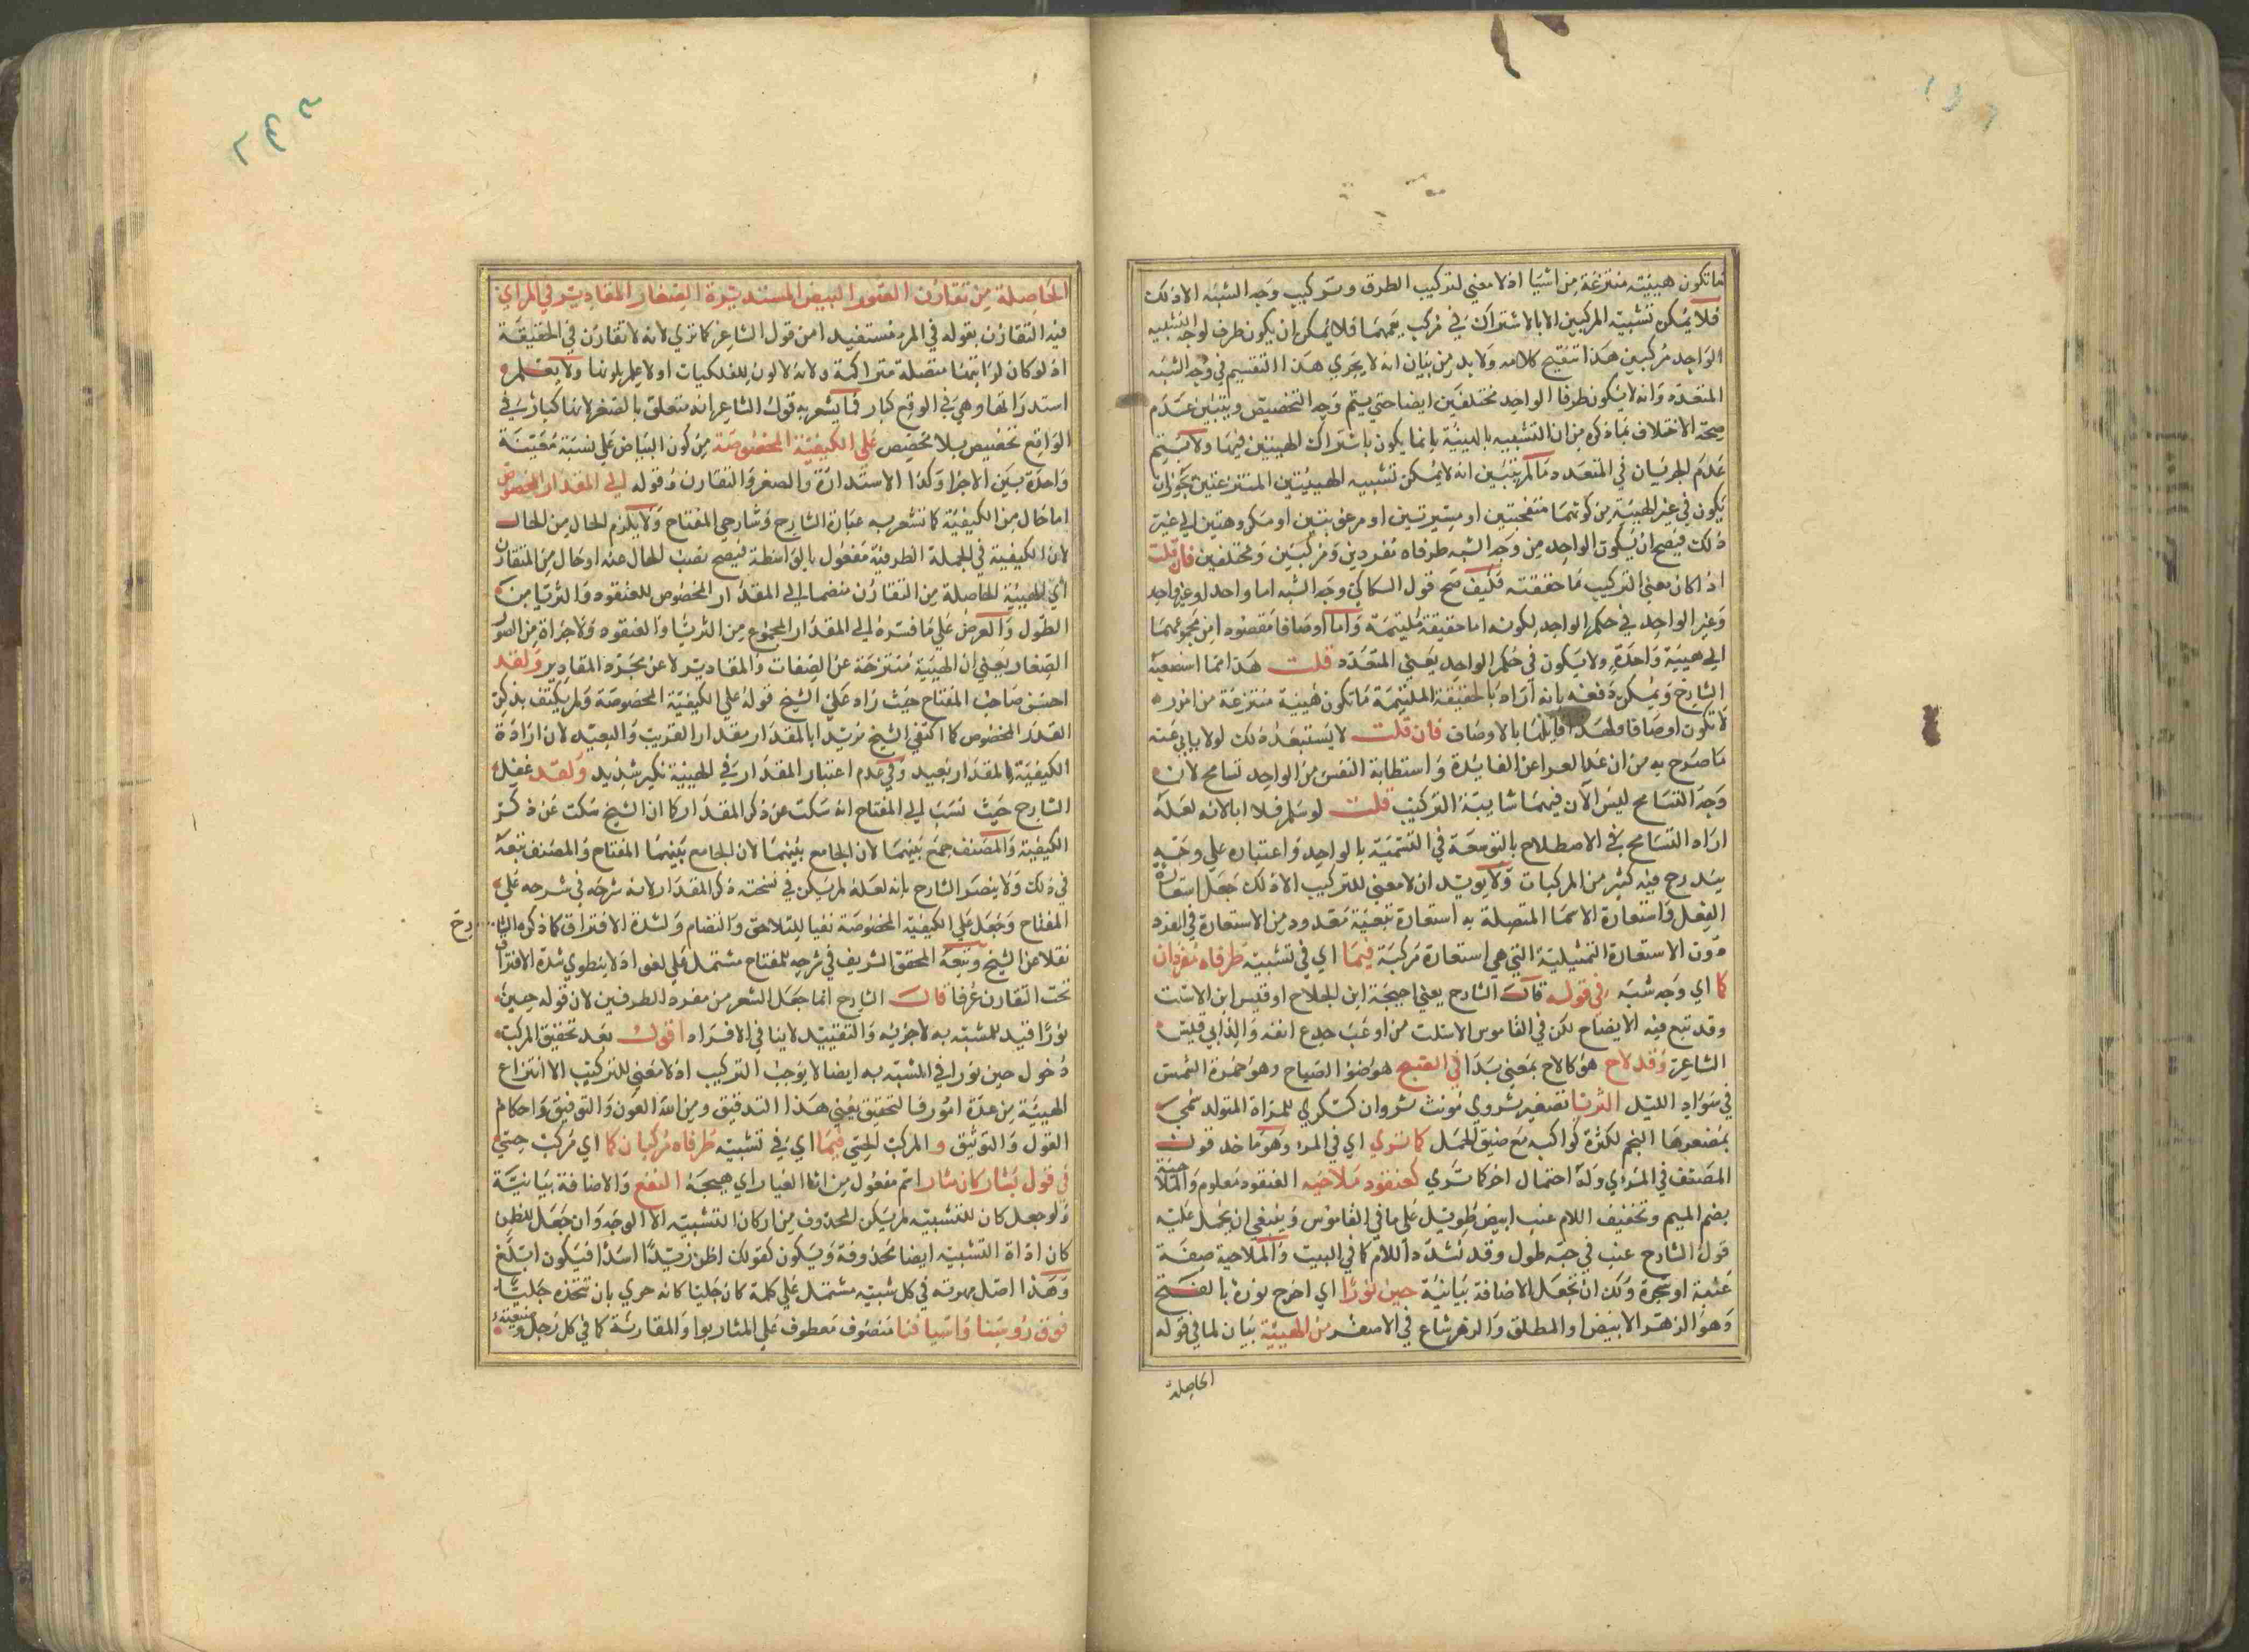 ما تكون هيئة منتزعة من اشيا اذ لا معني لتركيب الطرف وتركيب وجه الشبه الا ذلك
فلا يمكن تشبيه المركبين الا بالاشتراك في مركب يعمهما فلا يمكن ان يكون طرف لوجه التشبيه
الواحد مركبين هذا تنقيح كلامه ولا بد من بيان انه لا يجري هذا التقسيم في وجه الشبه
المتعدد وانه لا يكون طرفا الواحد مختلفين ايضا حتي يتم وجه التخصيص ويتبين عدم
صحة الاختلاف بما ذكره من ان التشبيه بالهيئة بانما يكون باشتراك الهيئتين فيهما ولا يتم
عدم الجريان في المتعدد ما لم يتبين انه لا يمكن تشبيه الهيئتين المنتزعتين بجواز ان
يكون في غير الهيئة من كونهما او مرغوبتين او مكروهتين الي غير
ذلك فيصح ان يكون الواحد من وجه الشبه طرفاه مفردين ومركبين ومختلفين فان قلت
اذا كان معني التركيب ما حققته فكيف صح قول السكاكي وجه الشبه اما واحد او غير واحد
وغير الواحد في حكم الواحد لكونه اما حقيقة ملتئمة واما اوصافا مقصودا من مجموعهما
الي هيئة واحدة ولا يكون في حكم الواحد يعني المتعدد قلت هذا مما استصعبه
الشارح ويمكن دفعه بانه اراد بالحقيقة الملتئمة ما تكون هيئة منتزعة من امور
لا تكون اوصافا ولهذا قابلها بالاوصاف فان قلت لا يستبعد ذلك لولا يابي عنه
ما صرح به من ان عد العرا عن الفايدة واستطابة النفس من الواحد تسامح لان
وجه التسامح ليس الا ان فيهما شايبة التركيب قلت لو سلم فلا ابا لانه لعله
اراد التسامح في الاصطلاح بالتوسعة في التسمية بالواحد واعتباره علي وجه
يندرج فيه كثير من المركبات ولا يويد ان لا معني للتركيب الا ذلك جعل استعارة
الفعل واستعارة الاسما المتصلة به استعارة تبعية معدود من الاستعارة في المفرد
دون الاستعارة التمثيلية التي هي استعارة مركبة فيما اي في تشبيه طرفاه مفردان
كما اي وجه شبه في قوله قال الشارح يعني احيحة ابن الجلاح او قيس ابن الاسلت
وقد تبع فيه الايضاح لكن في القاموس الاسلت من اوعب جدع انفه والد ابي قيس
الشاعر وقد لاح هو كالاح بمعني بدا في الصبح هو ضوا الصباح وهو حمرة الشمس
في سواد الليل الثريا تصغير ثروي مونث ثروان كسكري للمراة المتولد سمي
بمصغرها النجم لكثرة كواكبه مع ضيق المحل كما تري اي في المرء وهو ماخد قول
المصنف في المرءي وله احتمال اخر كما تري كعنقود ملاحيه العنقود معلوم والملاحية
بضم الميم وتخفيف اللام عنب ابيض طويل علي ما في القاموس وينبغي ان يحمل عليه
قول الشارح عنب في حبه طول وقد تشدد اللام كما في البيت والملاحية صفة
عنبة او شجرة ولك ان تجعل الاضافة بيانية حين نورا اي اخرج نوره بالفتح
وهو الزهر الابيض او المطلق والزهر شاع في الاصفر من الهيئة بيان لما في قوله
الحاصلة
الحاصلة من تقارن الصور البيض المستديرة الصغار المقادير في المراي
قيد التقارن بقوله في المرء مستفيدا من قول الشاعر كما تري لانه لا تقارن في الحقيقة
اذ لو كان لرايتها متصلة متراكمة ولانه لا لون للفلكيات او لا علم بلونها ولا يعلم
استدراتها وهي في الواقع كبار فما يشعر به قول الشاعر انه متعلق بالصغر لانها كبار في
الواقع تخصيص بلا مخصص علي الكيفية المخصوصة من كون البياض علي نسبة معينة
واحدة بين الاجزا وكذا الاستدارة والصغر والتقارن وقوله الي المقدار المخصوص
اما حال من الكيفية كما تشعر به عبارة الشارح وشارحي المفتاح ولا يلزم الحال من الحال
لان الكيفية في الجملة الظرفية مفعول بالواسطة فيصح نصب الحال عنه او حال من التقارن
اي الهيئة الحاصلة من التقارن منضما الي المقدار المخصوص للعنقود والثريا من
الطول والعرض علي ما فسره الي المقدار المجموع من الثريا والعنقود ولاجزاه من الصور
الصغار يعني ان الهيئة منتزعة عن الصفات والمقادير لا عن مجرد المقادير ولقد
احسن صاحب المفتاح حيث زاد علي الشيخ قوله علي الكيفية المخصوصة ولم يكتف بذكر
القدر المخصوص كما اكتفي الشيخ مريدا بالمقدار مقدار القريب والبعيد لان ارادة
الكيفية بالمقدار بعيد وفي عدم اعتبار المقدار في الهيئة نكير شديد ولقد غفل
الشارح حيث نسب الي المفتاح انه سكت عن ذكر المقدار كما ان الشيخ سكت عن ذكر
الكيفية والمصنف جمع بينهما لان الجامع بينهما لان الجامع بينهما المفتاح والمصنف تبعه
في ذلك ولا ينصر الشارح بانه لعله لم يكن في نسخته ذكر المقدار لانه شرحه في شرحه علي
المفتاح وجعل علي الكيفية المخصوصة نفيا للتلاصق والتضام ولشدة الافتراق كما ذكره الشارح
نقلا عن الشيخ وتبعه المحقق الشريف في شرحه للمفتاح مشتمل علي لغو اذ لا ينطوي شدة الافتراق
تحت التقارن عرفا قال الشارح انما جعل الشعر من مفرد الطرفين لان قوله حين
نورا قيد للمشبه به لا جزيه والتقييد لا ينافي الافراد اقول بعد تحقيق المركب
دخول حين نورا في المشبه به ايضا لا يوجب التركيب اذ لا معني للتركيب الا انتزاع
الهيئة من عدة امور فالتحقيق يعني هذا التدقيق ومن الله العون والتوفيق واحكام
القول والتوثيق والمركب الحسي فيما اي في تشبيه طرفاه مركبان كما اي مركب حسي
في قول بشار كان مثار اسم مفعول من اثار الغبار اي هيجه النقع والاضافة بيانية
ولو جعل كان للتشبيه لم يكن المحذوف من اركان التشبيه الا الوجه وان جعل للظن
كان اداة التشبيه ايضا محذوفة ويكون كقولك اظن زيدا اسدا فيكون ابلغ
وهذا اصل مهدته في كل شبيه مشتمل علي كلمة كان خليقا كانه حري بان تتخذه جليسا
فوق رؤسنا واسيافنا منصوب معطوف علي المثار بواو المقارنة كما في كل رجل وضيعته